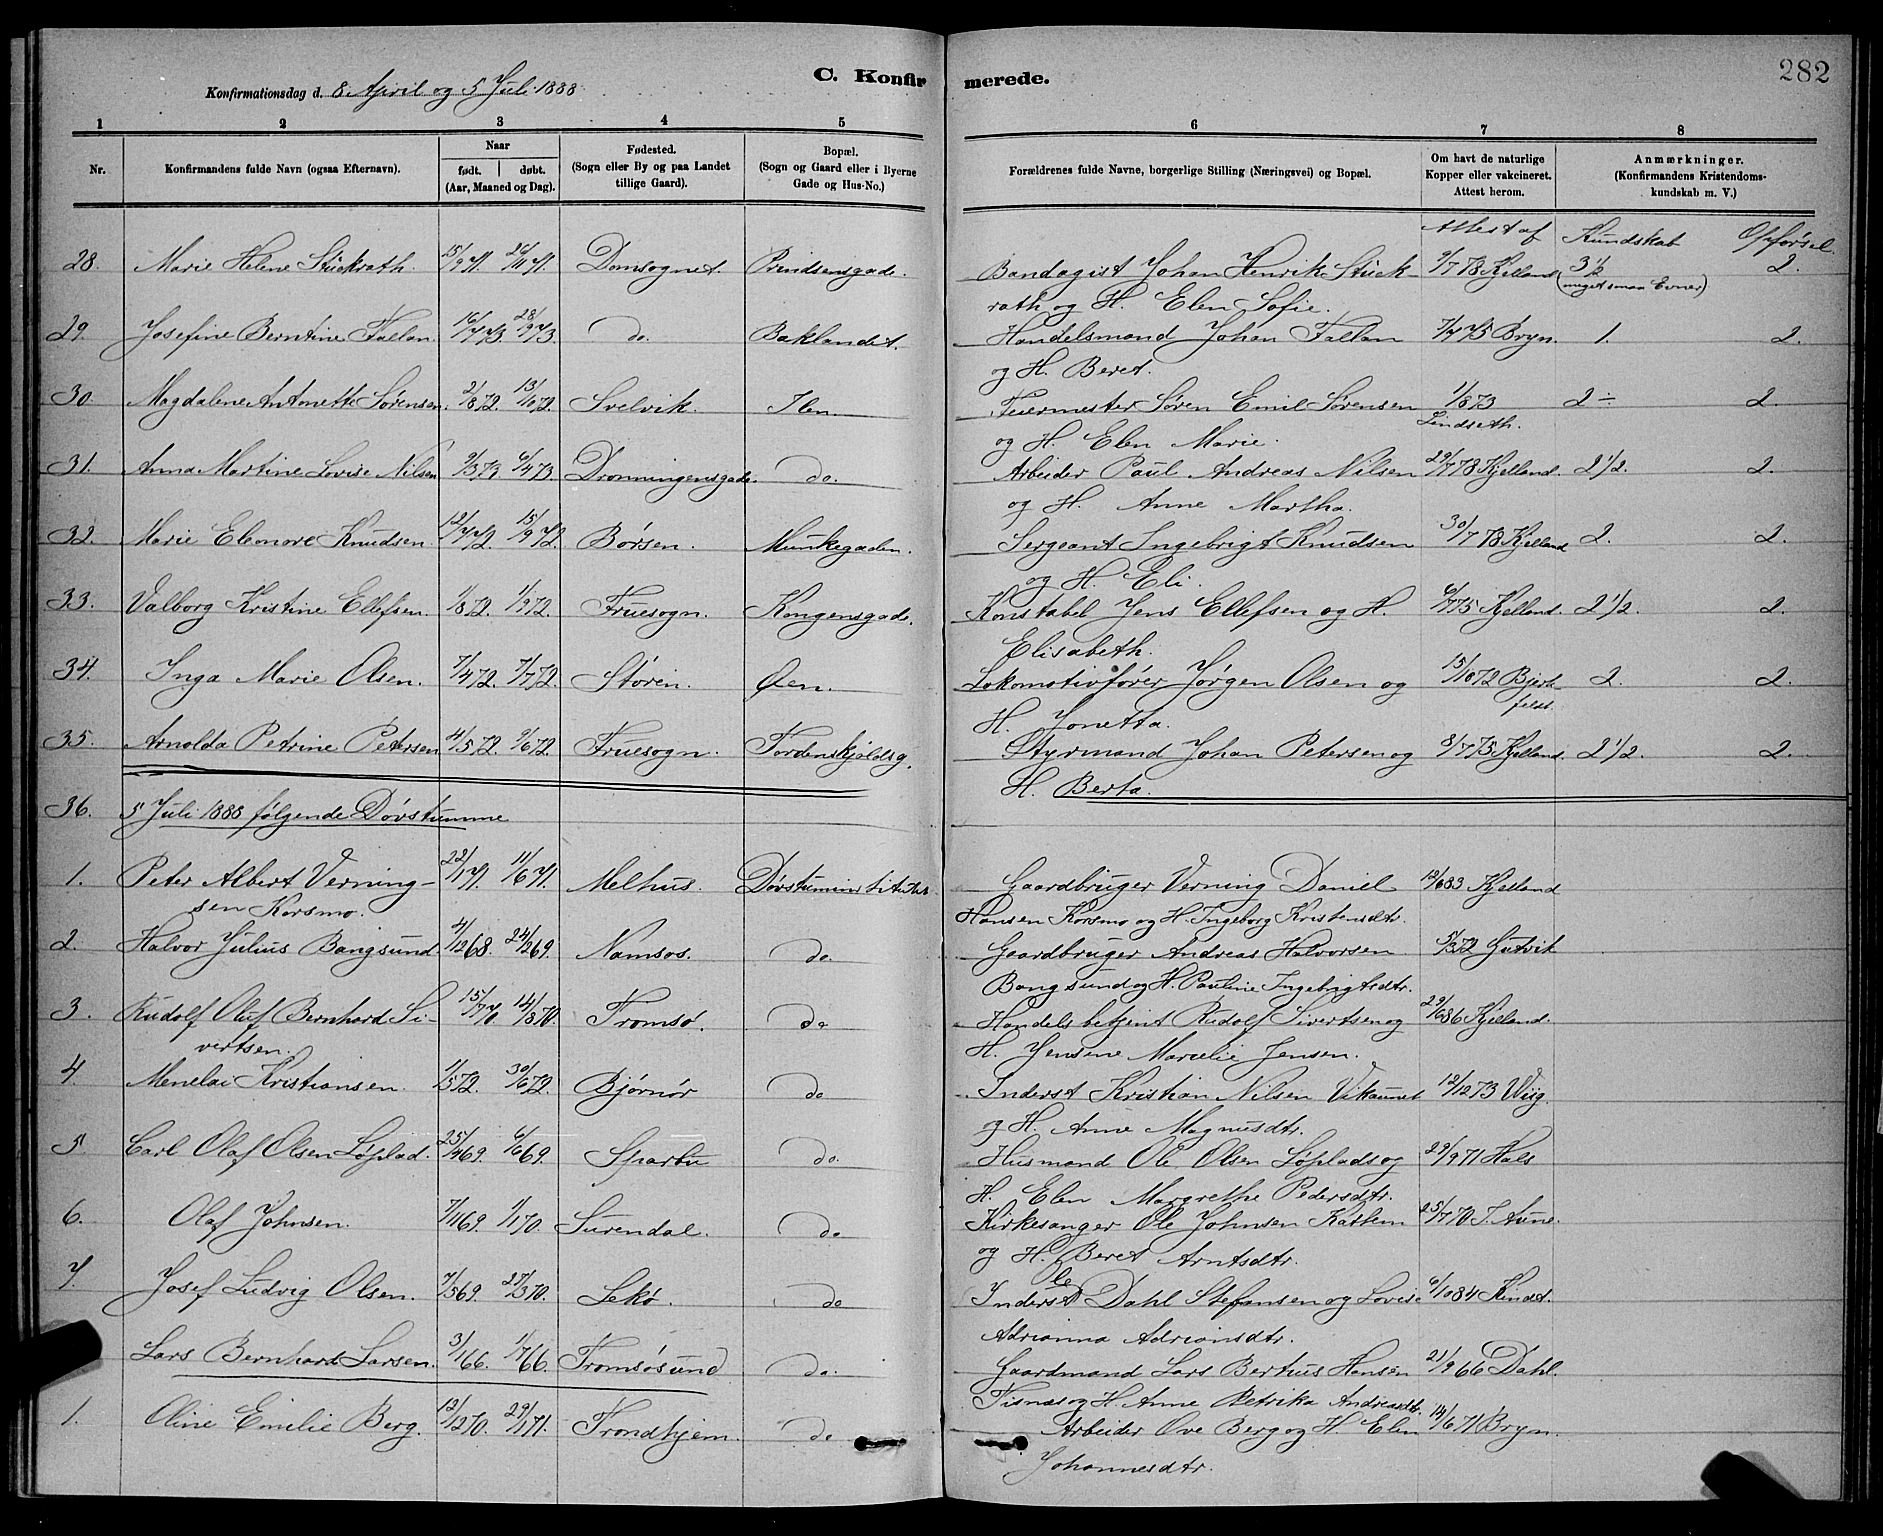 282
C. Konfirmerede.
Konfirmationsdag d. 8 April og 5 Juli 1888
1 2 3 4 5 6 7 8
Nr.
Konfirmandens fulde Navn (ogsaa Efternavn).
Naar
født. døbt.
(Aar, Maaned og Dag).
Fødested.
(Sogn eller By og paa Landet
tillige Gaard).
Bopæl.
(Sogn og Gaard eller i Byerne
Gade og Hus-No.)
Forældrenes fulde Navne, borgerlige Stilling (Næringsvei) og Bopæl.
Om havt de naturlige
Kopper eller vakcineret.
Attest herom.
Anmærkninger.
(Konfirmandens Kristendoms-
kundskab m. V.)
Attest af Kundskab Opførsel
28. Marie Helene Stückrath. 15/9 71. 26/11 71. Domsognet. Prindsensgade. Bandagist Johan Henrik Stück- 9/7 78 Kjelland 3 1/2 2.
rath og H. Elen Sofie. (meget smaa Evner)
29. Josefine Berntine Fallan. 16/7 73. 28/9 73. do. Baklandet. Handelsmand Johan Fallan 7/4 75 Bryn. 1. 2.
og H. Beret.
30 Magdalene Antonette Sørensen. 2/8 72. 13/10 72. Svelvik. Ilen Feiermester Søren Emil Sørensen 1/8 73 2 ÷ 2.
og H. Elen Marie. Lindseth.
31. Anna Martine Lovise Nilsen 9/3 73 6/4 73. Dronningensgade. do. Arbeider Paul Andreas Nilsen 29/7 78 Kjelland. 2 1/2. 2.
og H. Anne Martha.
32. Marie Eleonore Knudsen. 12/7 72. 15/9 72. Børsen. Munkegaden. Sergeant Ingebrigt Knudsen 30/7 78 Kjelland 2. 2.
og H. Eli.
33. Valborg Kristine Ellefsen. 1/8 72. 1/9 72. Fruesogn. Kongensgade. Konstabel Jens Ellefsen og H. 6/7 75 Kjelland. 2 1/2. 2.
Elisabeth.
34. Inga Marie Olsen. 7/4 72. 7/7 72. Støren. Øen. Lokomotivfører Jørgen Olsen og 15/10 72 Bjerk- 2. 2.
H. Jonetta. felt.
35. Arnolda Petrine Petersen 4/5 72. 9/6 72. Fruesogn. Tordenskjoldsg. Styrmand Johan Petersen og 8/7 75 Kjelland. 2 1/2. 2.
H. Berta.
36. 5 Juli 1888 følgende Døvstumme
1. Peter Albert Verning- 22/1 71. 11/6 71. Melhus. Døvstuminstitutet Gaardbruger Verning Daniel 12/6 83 Kjelland
sen Korsmo. Hansen Korsmo og H. Ingeborg Kristensdtr.
2. Halvor Julius Bangsund. 4/12 68. 24/2 69. Namsos. do. Gaardbruger Andreas Halvorsen 5/3 72 Gutvik
Bangsund og H. Pauline Ingebrigtsdtr.
3. Rudolf Oluf Bernhard Si- 15/7 70. 14/8 70. Tromsø. do Handelsbetjent Rudolf Sivertsen og 29/6 86 Kjelland.
vertsen. H. Jensine Marelie Jensen.
4. Menelai Kristiansen. 1/5 72. 30/6 72. Bjørnør do Inderst Kristian Nilsen Vikaunet 12/12 73 Wiig.
og H. Anne Magnusdtr.
5. Carl Olaf Olsen Løplad. 25/4 69. 6/6 69. Sparbu do. Husmand Ole Olsen Løplads og 29/9 71 Hals
H. Elen Margrethe Pedersdtr.
6. Olaf Johnsen. 7/11 69. 1/1 70. Surendal. do Kirkesanger Ole Johnsen Kattem 25/7 70 J. Aune.
og H. Beret Arntsdtr.
7. Josef Ludvig Olsen. 7/5 69. 27/3 70. Lekø. do Inderst Ole Dahl Stefansen og Lovise 6/10 84 Kindt.
Adrianna Adriansdtr.
Lars Bernhard Larsen. 3/1 66. 1/7 66. Tromsøsund do. Gaardmand Lars Berthus Hansen 21/9 66 Dahl.
Tisnæs og H. Anne Petrika Andreasdtr.
1. Oline Emilie Berg. 12/12 70. 29/1 71. Trondhjem. do Arbeider Ove Berg og H. Elen 14/6 71 Bryn.
Johannesdtr.